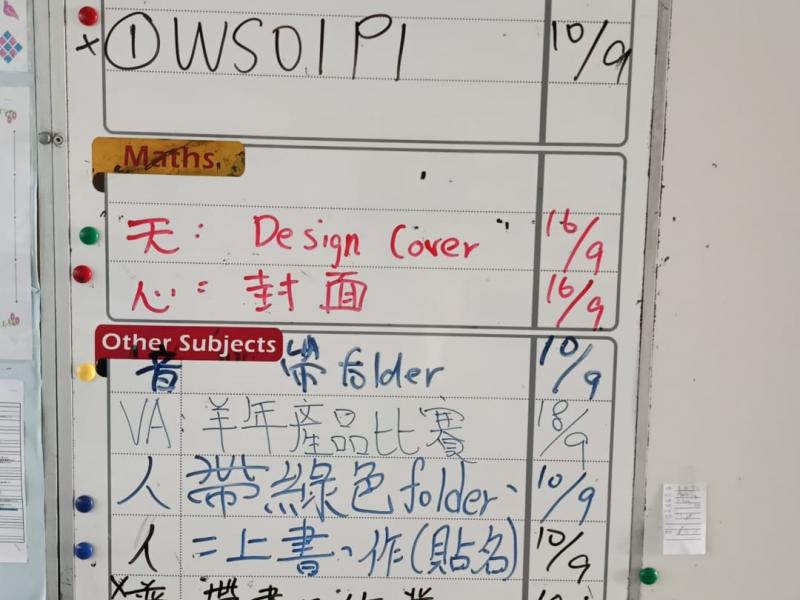 x ① WS01 P1 10/9
Maths
天: Design Cover 16/9
心: 封面 16/9
Other Subjects
音 帶 folder 10/9
VA: 羊年產品比賽 18/9
人 帶綠色folder、 10/9
人 =上書、作(貼名) 10/9